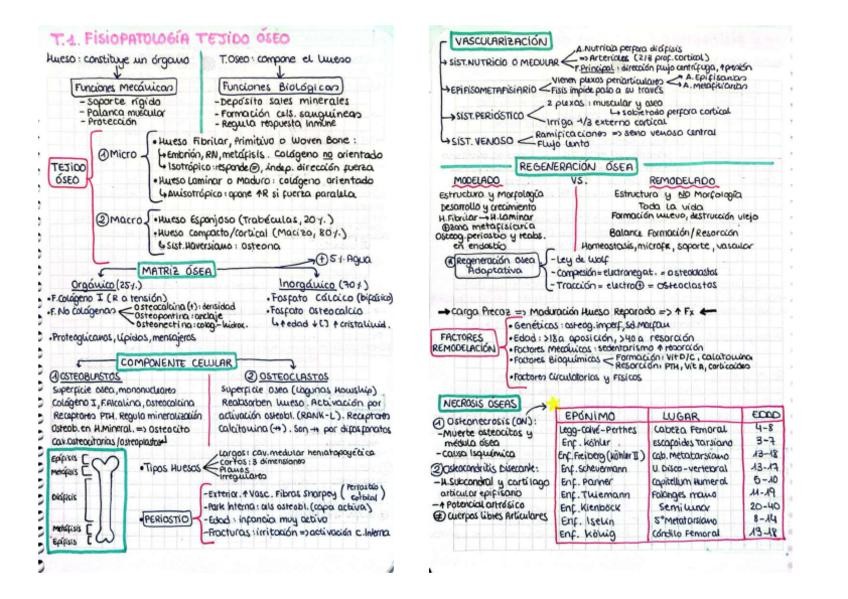 T.1. FISIOPATOLOGÍA TEJIDO ÓSEO
Hueso: constituye un órgano
T. Óseo: compone el hueso
Funciones Mecánicas
- Soporte rígido
- Palanca muscular
- Protección
Funciones Biológicas
- Depósito sales minerales
- Formación cels. sanguíneas
- Regula respuesta inmune
TEJIDO ÓSEO
① Micro
• Hueso Fibrilar, Primitivo o Woven Bone:
↳ Embrión, RN, metáfisis. Colágeno no orientado
↳ Isotrópico: responde, indep. dirección fuerza
• Hueso Laminar o Maduro: colágeno orientado
↳ Anisotrópico: opone ↑R si fuerza paralela
② Macro
• Hueso Esponjoso (Trabéculas, 20%)
• Hueso Compacto/Cortical (Macizo, 80%)
↳ Sist. Haversiano: Osteona
MATRIZ ÓSEA
→ ⊕ 5% Agua
Orgánico (25%)
• F. Colágeno I (R a tensión)
• F. No Colágenas
Osteocalcina (+): densidad
Osteopontina: anclaje
Osteonectina: colag-hidrox.
• Proteoglicanos, Lípidos, mensajeros
Inorgánico (70%)
• Fosfato Cálcico (bifásico)
• Fosfato Osteocalcio
↳ ↑edad ↓[ ] ↑cristalinid.
COMPONENTE CELULAR
① OSTEOBLASTOS
Superficie ósea, mononucleares
Colágeno I, F.Alcalina, osteocalcina
Receptores PTH. Regula mineralización
Osteob. en H.Mineral. => Osteocito
Cav. osteocitarias/osteoplastos
② OSTEOCLASTOS
Superficie ósea (Lagunas Howship)
Reabsorben hueso. Activación por
activación osteobl. (RANK-L). Receptores
Calcitonina (→). Son → por difosfonatos
Epífisis
Metáfisis
Diáfisis
Metáfisis
Epífisis
• Tipos Huesos
Largos: cav. medular hematopoyética
Cortos: 3 dimensiones
Planos
Irregulares
• PERIOSTIO
- Exterior: ↑Vasc. Fibras Sharpey (Periostio
- Park Interna: cels osteobl. (capa activa)
- Edad: infancia muy activo
- Fracturas: irritación => activación c. Interna
VASCULARIZACIÓN
→ SIST. NUTRICIO O MEDULAR
A. Nutricia perfora diáfisis
=> Arteriolas (2/3 prof. cortical)
F. Principal: dirección flujo centrífuga, ↑presión
→ EPIFISOMETAFISARIO
Vienen plexos periarticulares
→ A. Epifisarias
→ A. Metafisiarias
Fisis impide paso a su través
→ SIST. PERIÓSTICO
2 plexos: muscular y óseo
↳ sobretodo perfora cortical
Irriga 1/3 externo cortical
→ SIST. VENOSO
Ramificaciones => seno venoso central
Flujo lento
REGENERACIÓN ÓSEA
MODELADO
VS.
REMODELADO
Estructura y Morfología
Desarrollo y crecimiento
H. Fibrilar → H. Laminar
zona metafisaria
Osteog. periostio y reabs.
en endostio
Estructura y NO Morfología
Toda la vida
Formación nuevo, destrucción viejo
Balance Formación/Resorción
Homeostasis, microfx, soporte, vascular
Regeneración ósea Adaptativa
- Ley de Wolf
- Compresión = electronegat. = osteoblastos
- Tracción = electro⊕ = Osteoclastos
→ Carga Precoz => Maduración Hueso Reparado => ↑ Fx ←
FACTORES REMODELACIÓN
• Genéticos: osteog. imperf, sd. Marfan
• Edad: >18a aposición, >40a resorción
• Factores Mecánicos: sedentarismo ↑ resorción
• Factores Bioquímicos
Formación: Vit D/C, Calcitonina
Resorción: PTH, Vit A, corticoides
• Factores Circulatorios y Físicos
NECROSIS ÓSEAS
① Osteonecrosis (ON):
- Muerte osteocitos y
médula ósea
- Causa Isquémica
② Osteocondritis disecante:
- H. Subcondral y cartílago
articular epifisario
- ↑ Potencial artrósico
Cuerpos libres Articulares
EPÓNIMO | LUGAR | EDAD
Legg-Calvé-Perthes | Cabeza Femoral | 4-8
Enf. Köhler | Escafoides Tarsiano | 3-7
Enf. Freiberg (Köhler II) | Cab. metatarsiano | 13-18
Enf. Scheuermann | U. Disco-vertebral | 13-17
Enf. Panner | Capitellum Humeral | 5-10
Enf. Thiemann | Falanges mano | 11-19
Enf. Kienböck | Semilunar | 20-40
Enf. Iselin | 5º Metatarsiano | 8-14
Enf. König | Cóndilo Femoral | 13-18